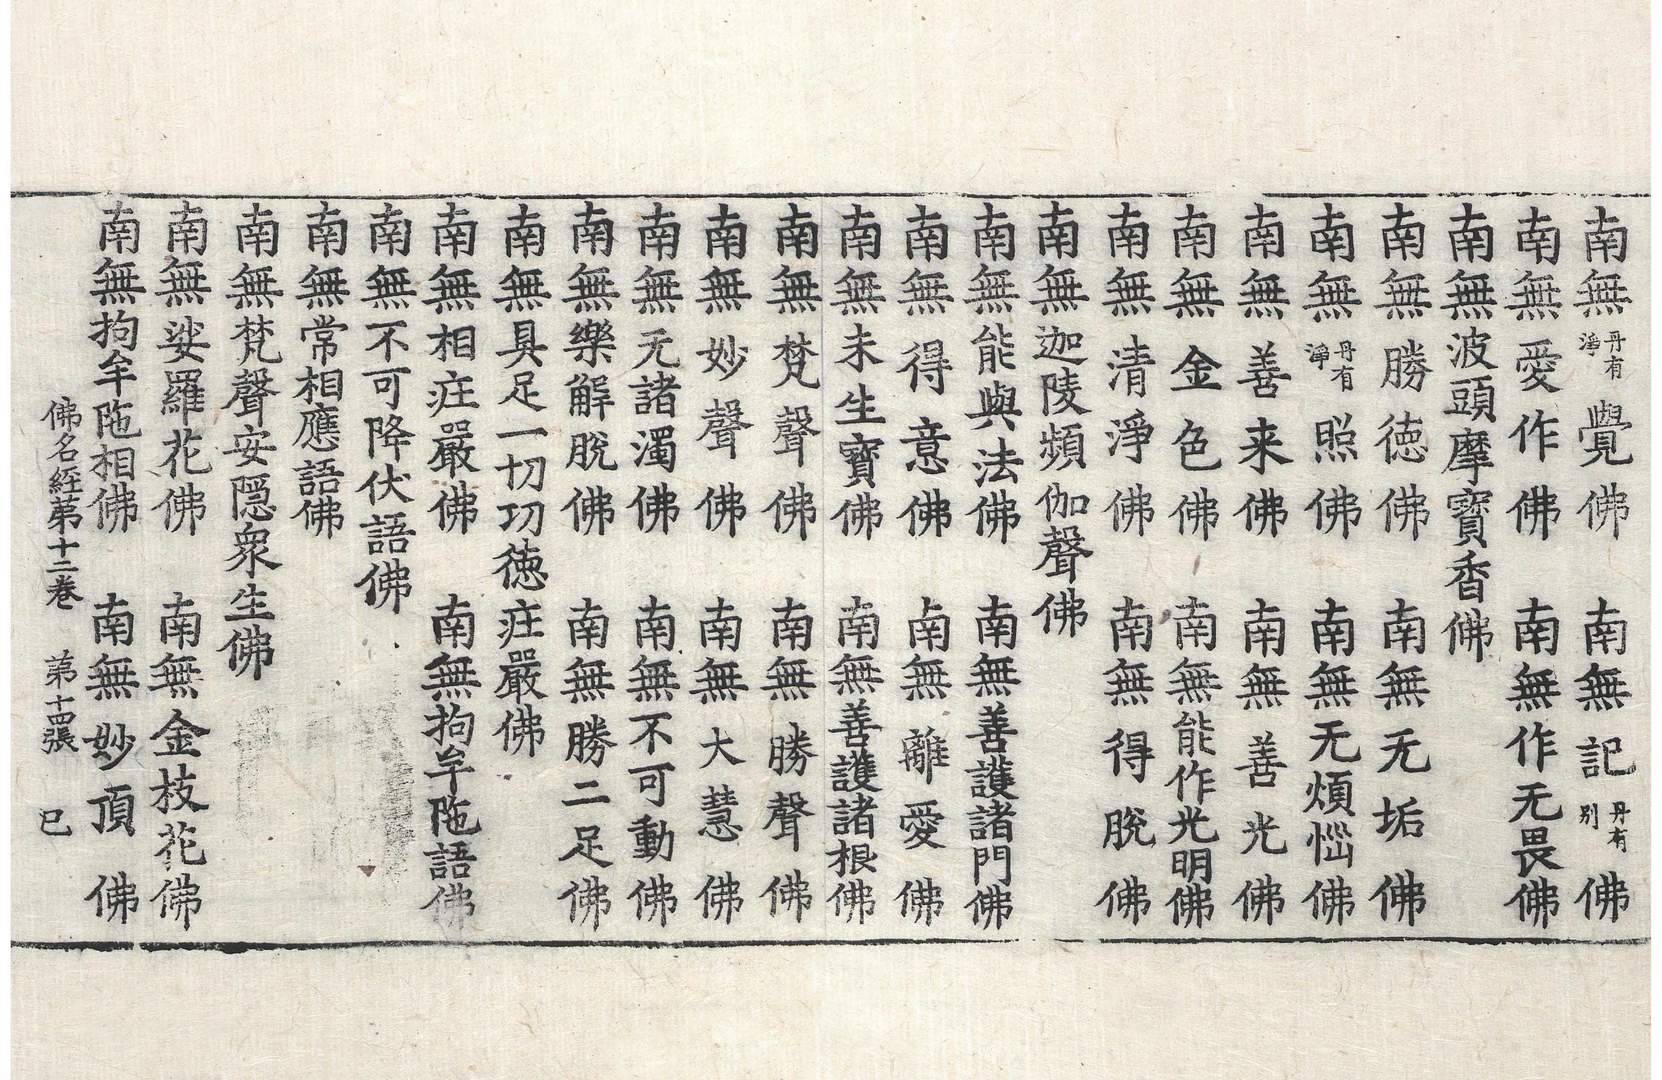 南無丹有淨覺佛 南無記丹有別佛
南無愛作佛 南無作无畏佛
南無波頭摩寶香佛
南無勝徳佛 南無无垢佛
南無丹有淨照佛 南無无煩惱佛
南無善来佛 南無善光佛
南無金色佛 南無能作光明佛
南無清淨佛 南無得脫佛
南無迦陵頻伽聲佛
南無能與法佛 南無善護諸門佛
南無得意佛 南無離愛佛
南無未生寶佛 南無善護諸根佛
南無梵聲佛 南無勝聲佛
南無妙聲佛 南無大慧佛
南無无諸濁佛 南無不可動佛
南無樂解脫佛 南無勝二足佛
南無具足一切功徳庄嚴佛
南無相庄嚴佛 南無拘牟陁語佛
南無不可降伏語佛
南無常相應語佛
南無梵聲安隱衆生佛
南無娑羅花佛 南無金枝花佛
南無拘牟陁相佛 南無妙頂佛
佛名經第十二卷 第十四張 巳